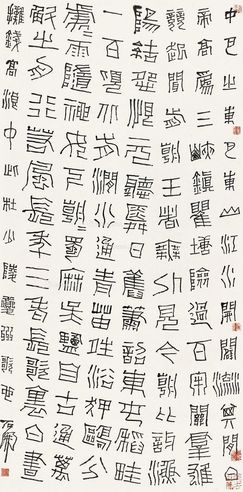 中巴之東巴東山江水開闢流其間白
帝高為三峽鎮瞿塘險過百牢關群雄
競起問前朝王者無外見今朝比訝漁
陽結怨恨元聽舜日舊簫韶東屯稻畦
一百頃北有澗水通青苗晴浴狎鷗分處
處雨隨神女下朝朝蜀麻吳鹽自古通萬
斛之舟行若風長年三老長歌裏白晝
攤錢高浪中此杜少陵夔州歌也